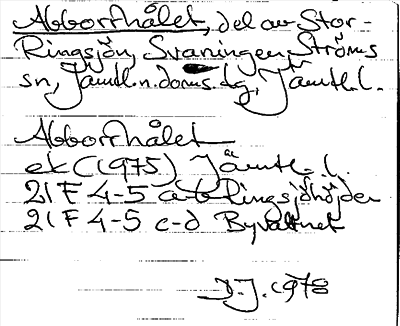 Abborrhålet, del av Stor-
Ringsjön, Svaningen Ströms
sn, Jämtl. n. doms.dg, Jämtl. l.
Abborrhålet
ek C (1975) Jämtl. l.
21 F 4-5 a-b Ringsjöhöjden
21 F 4-5 c-d Byvattnet
D.J. 1978